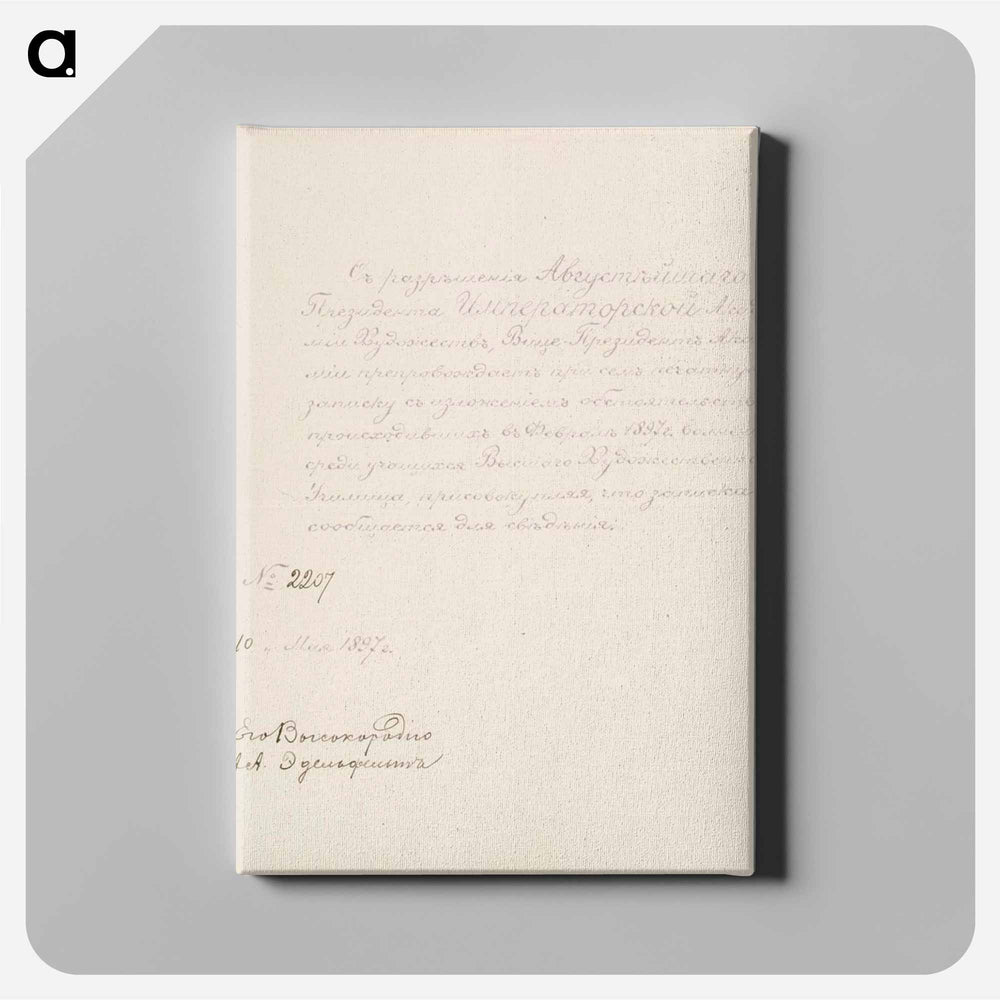 a.
Съ разрѣшенія Августѣйшаго
Президента Императорской Акад
міи Художествъ, Вице-Президентъ Ака
міи препровождаетъ при семъ печатную
записку съ изложеніемъ обстоятельств
происходившихъ въ Февралѣ 1897 г. волнен
среди учащихся Высшаго Художественна
Училища, присовокупляя, что записка
сообщается для свѣдѣнія.
№ 2207
10 „ Мая 1897 г.
Его Высокородію
А. Эдельфельтъ